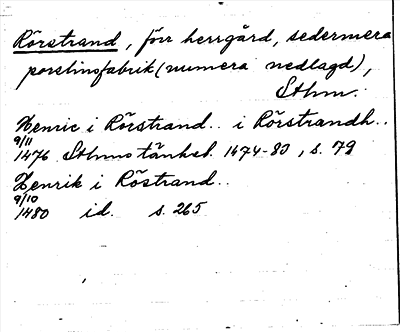 Rörstrand, förr herrgård, sedermera
porslinsfabrik (numera nedlagd),
Sthm.
Henric i Rörstrand.. i Rörstrandh..
9/11
1476 Sthms tänkeb. 1474-83, s. 79
Henrik i Röstrand..
9/10
1480 id. s. 265